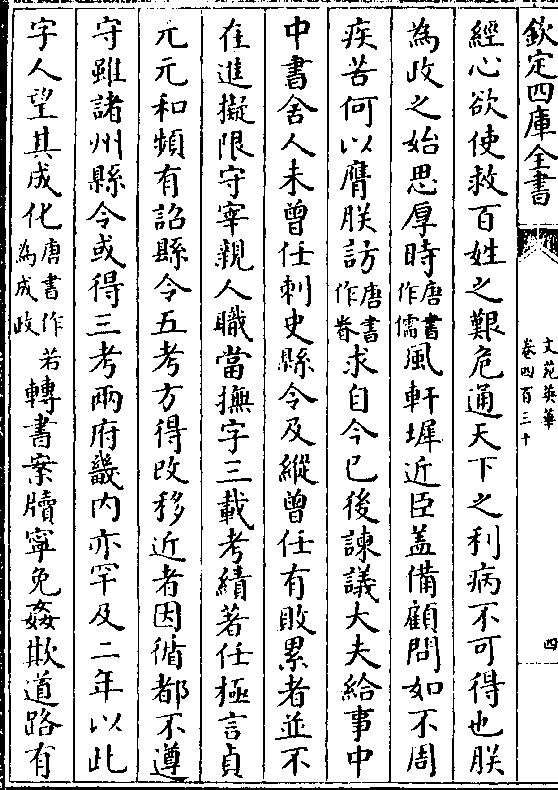 欽定四庫全書
文苑英華
卷四百三十
四
經心欲使救百姓之艱危通天下之利病不可得也朕
為政之始思厚時唐書作儒風軒墀近臣蓋備顧問如不周
疾苦何以膺朕訪唐書作眷求自今已後諫議大夫給事中
中書舍人未曾任刺史縣令及縱曾任有敗累者並不
在進擬限守宰親人職當撫字三載考績著任極言貞
元元和頻有詔縣令五考方得改移近者因循都不遵
守雖諸州縣令或得三考兩府畿內亦罕及二年以此
字人望其成化唐書作為成政若轉書案牘寧免姦欺道路有